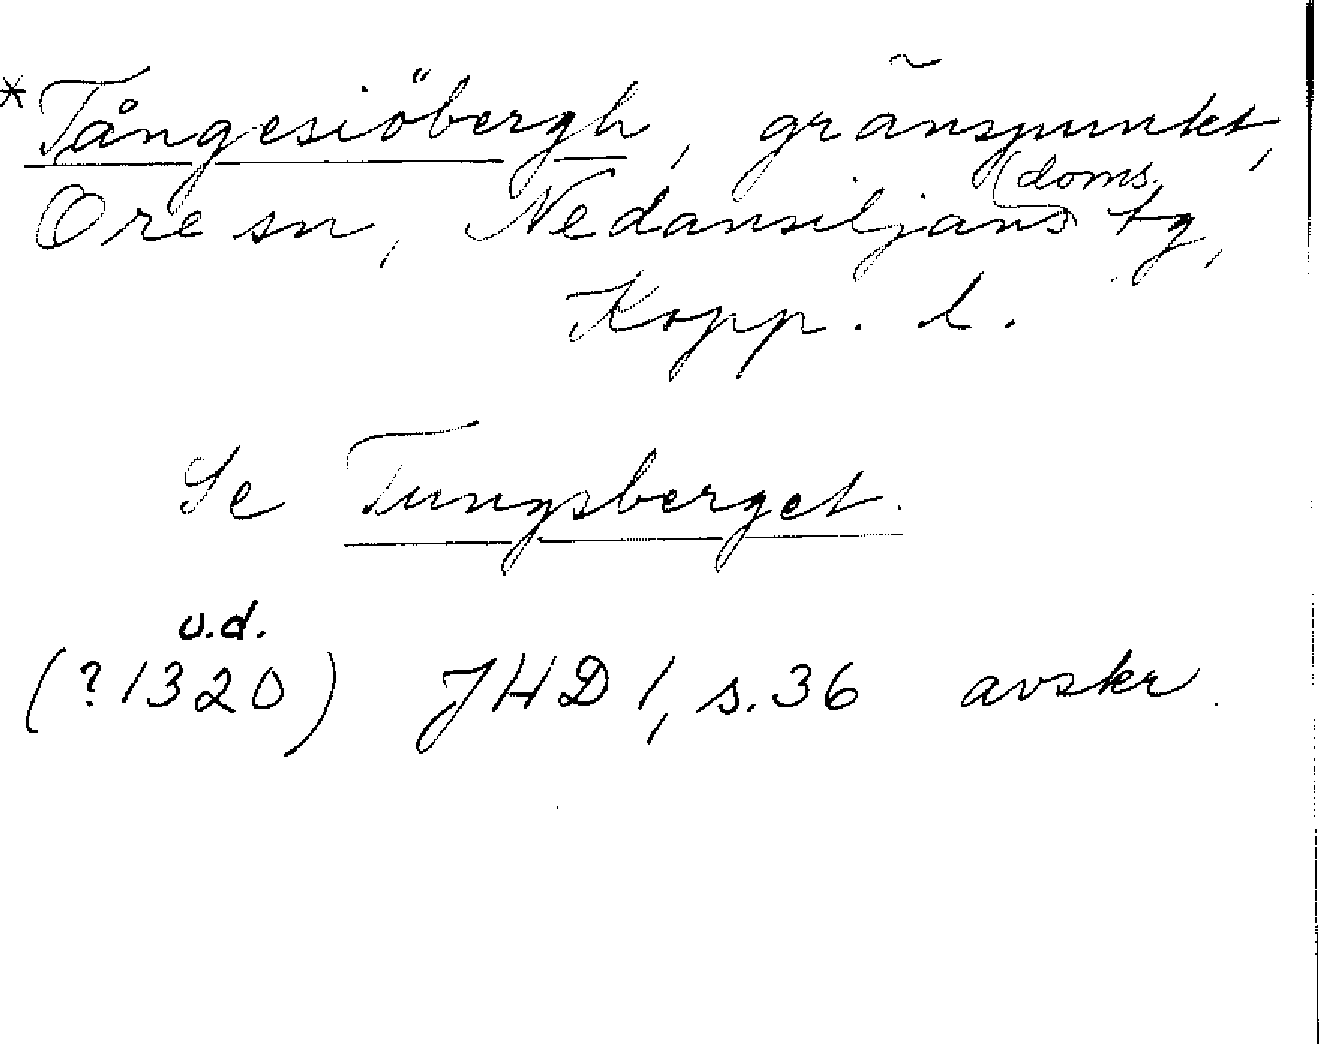 *Tångesiöbergh, gränspunkt,
Ore sn, Nedansiljans doms. tg,
Kopp. l.
Se Tungsberget.
u.d.
(?1320) JHD 1, s. 36 avskr.